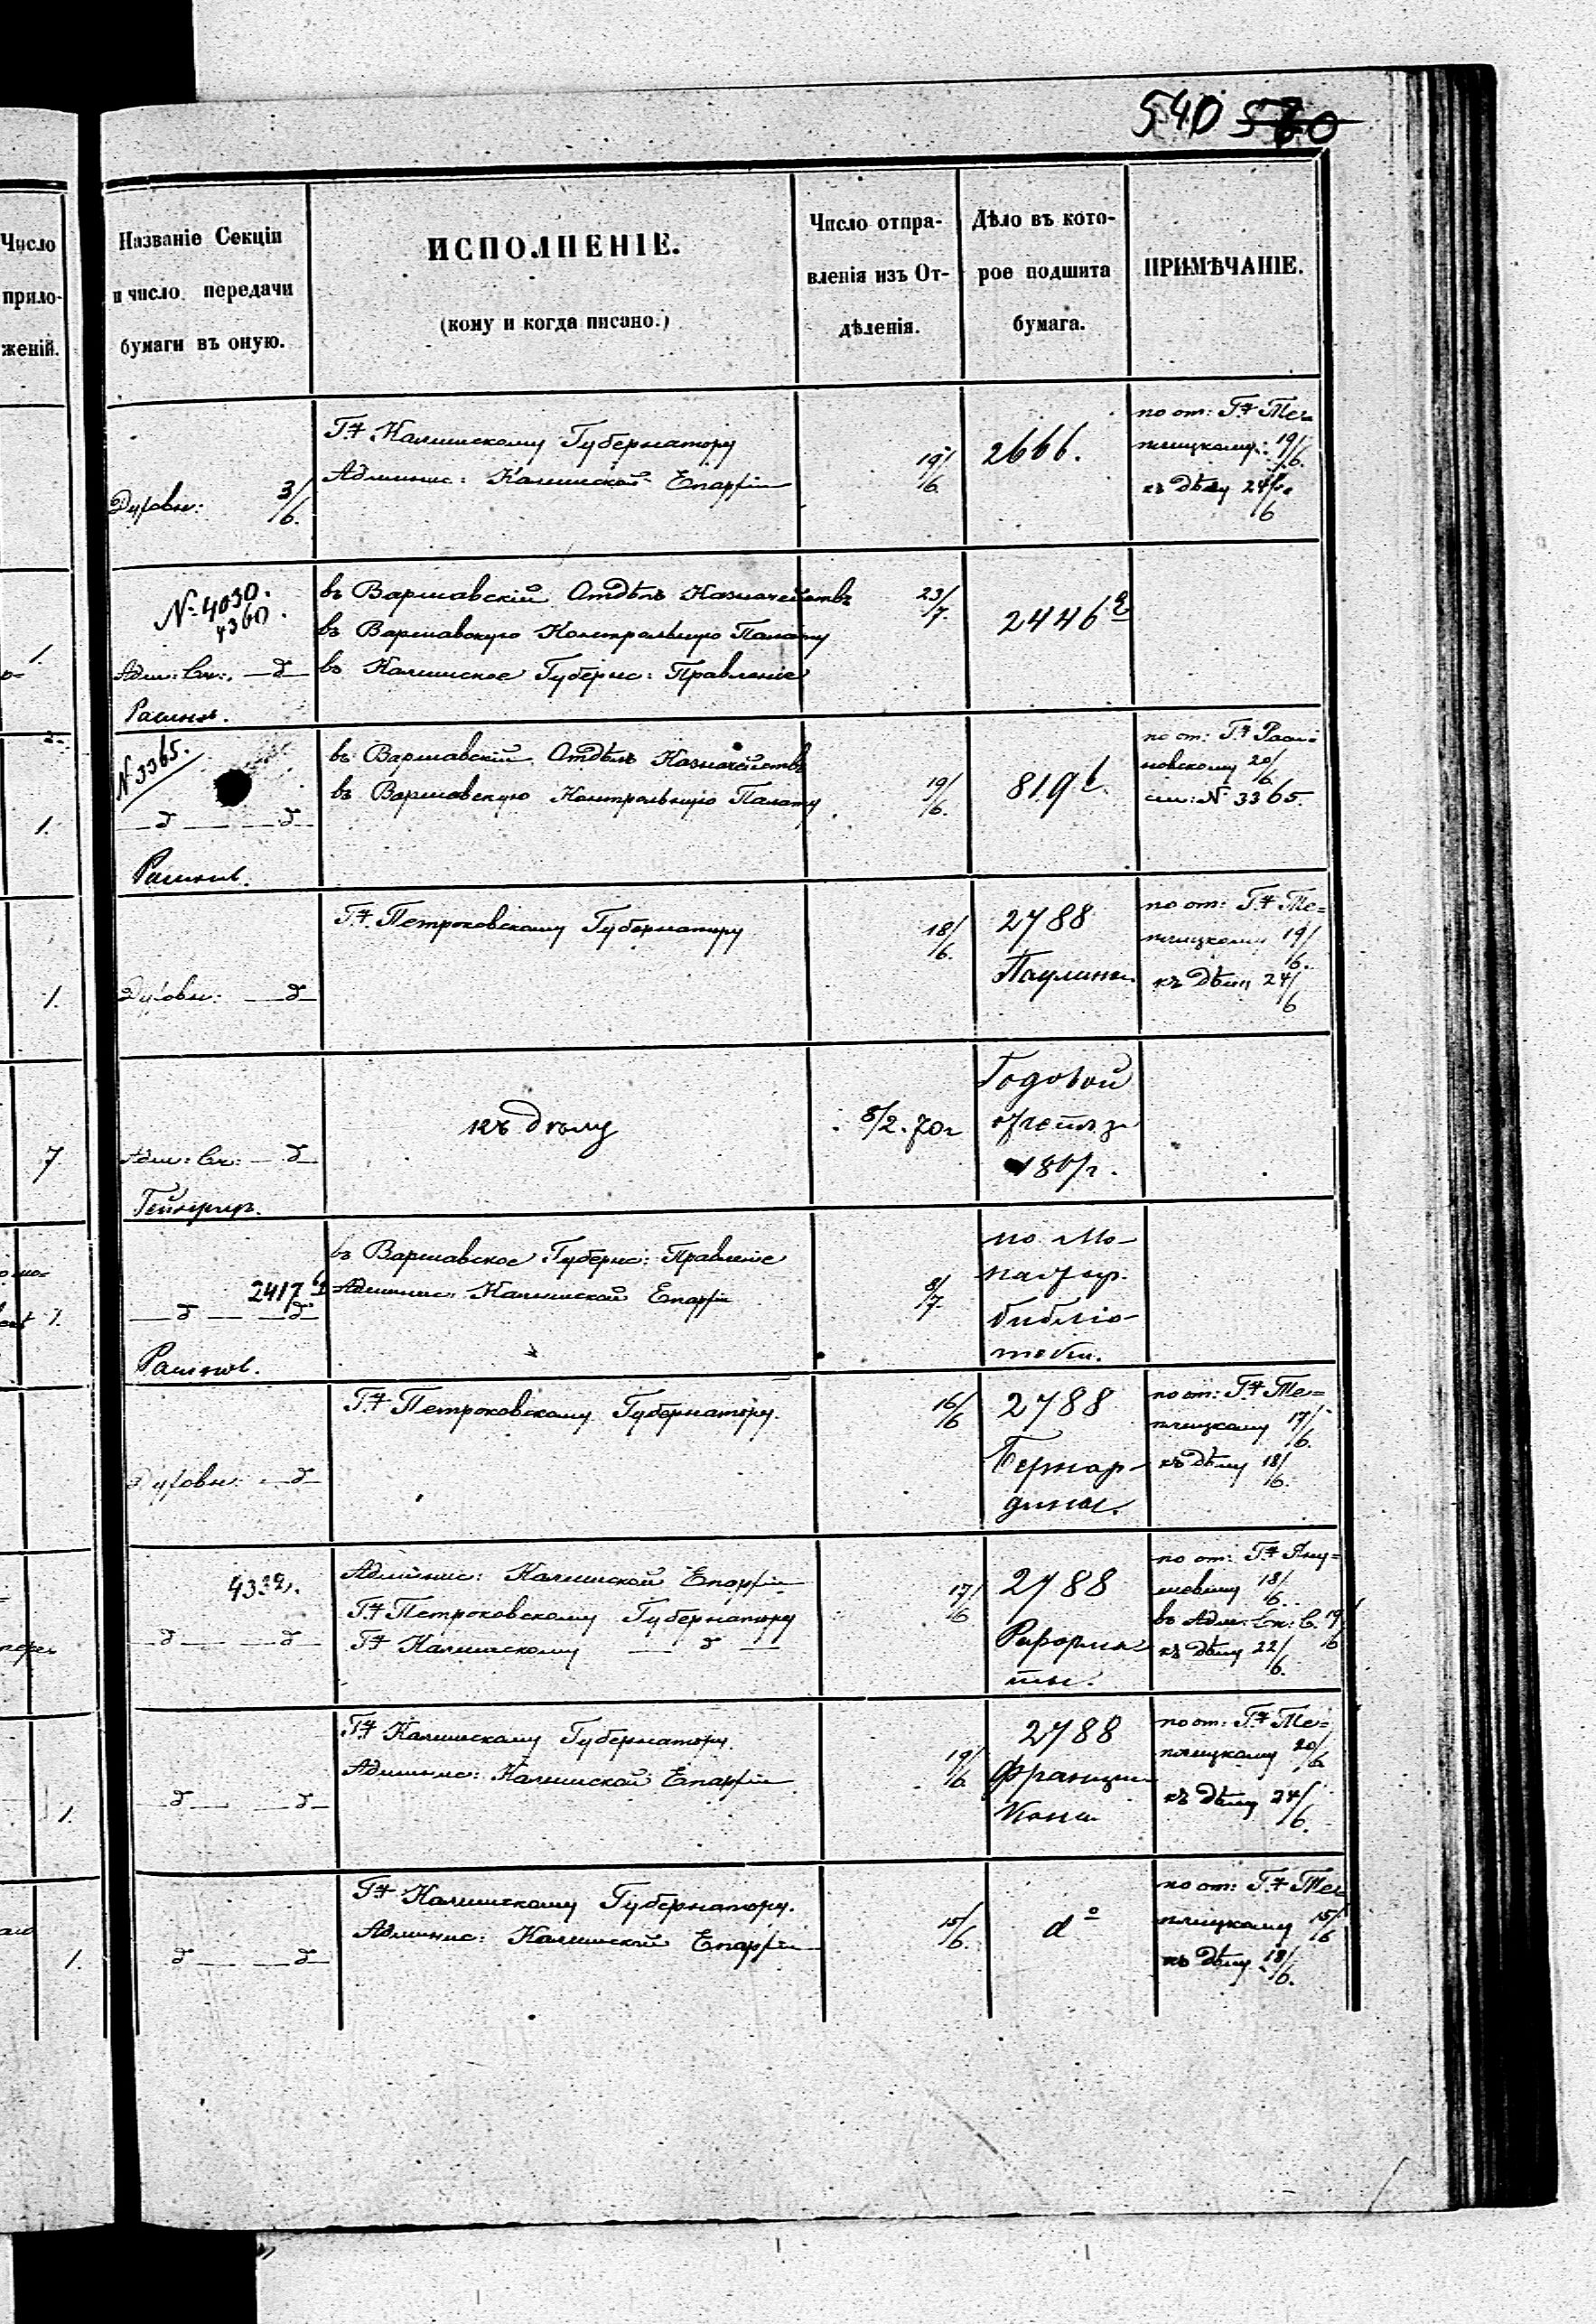 540 570
Число
прило-
женій.
Названіе Секціи
и число передачи
бумаги въ оную.
ИСПОЛНЕНІЕ.
(кому и когда писано.)
Число отпра-
вленія изъ От-
дѣленія.
Дѣло въ кото-
рое подшита
бумага.
ПРИМѢЧАНІЕ.
Духовн: 3/6.
Г.н Калишскому Губернатору
Админис: Калишской Епархіи
19/6.
2666.
по от: Г.н Те=
плицкому: 19/6.
къ дѣлу 24/6
1.
№ 4030.
4360.
Адм: Ск: — д —
Рашнов.
въ Варшавскій Отдѣлъ Казначействъ
въ Варшавскую Контрольную Палату
въ Калишское Губернс: Правленіе
23/7.
2446
1.
N 3365.
— д — — д —
Рашнов.
въ Варшавскій Отдѣлъ Казначействъ
въ Варшавскую Контрольную Палату
19/6.
819
по от: Г.н
новскому 20/6
см: N 3365.
1.
Духовн: — д —
Г.н Петроковскому Губернатору
18/6.
2788
Паулины.
по от: Г.н Те=
плицкому 19/6.
къ дѣлу 24/6
7
Адм: Ск: — д —
къ дѣлу
8/2. 70 г
Годовой
отчетъ за
186 г.
1.
2417
— д — — д —
Рашнов.
въ Варшавское Губернс: Правленіе
Админис: Калишской Епархіи
8/7.
по Мо-
настыр.
библіо-
теки.
Духовн: — д —
Г.н Петроковскому Губернатору.
16/6
2788
Бернар-
дины.
по от: Г.н Те=
плицкому 17/6.
къ дѣлу 18/6.
— д — — д —
Админис: Калишской Епархіи
Г.н Петроковскому Губернатору
Г.н Калишскому — д —
17/6
2788
Реформа-
ты.
по от: Г.н Яну=
шевичу 18/6.
въ Адм: Ск: С. 19/6
къ дѣлу 22/6.
1.
— д — — д —
Г.н Калишскому Губернатору.
Админис: Калишской Епархіи
19/6
2788
Францис-
кане
по от: Г.н Те=
плицкому 20/6
къ дѣлу 24/6.
1.
д — — д —
Г.н Калишскому Губернатору.
Админис: Калишской Епархіи
15/6.
dо
по от: Г.н Те=
плицкому 15/6
къ дѣлу 18/6.